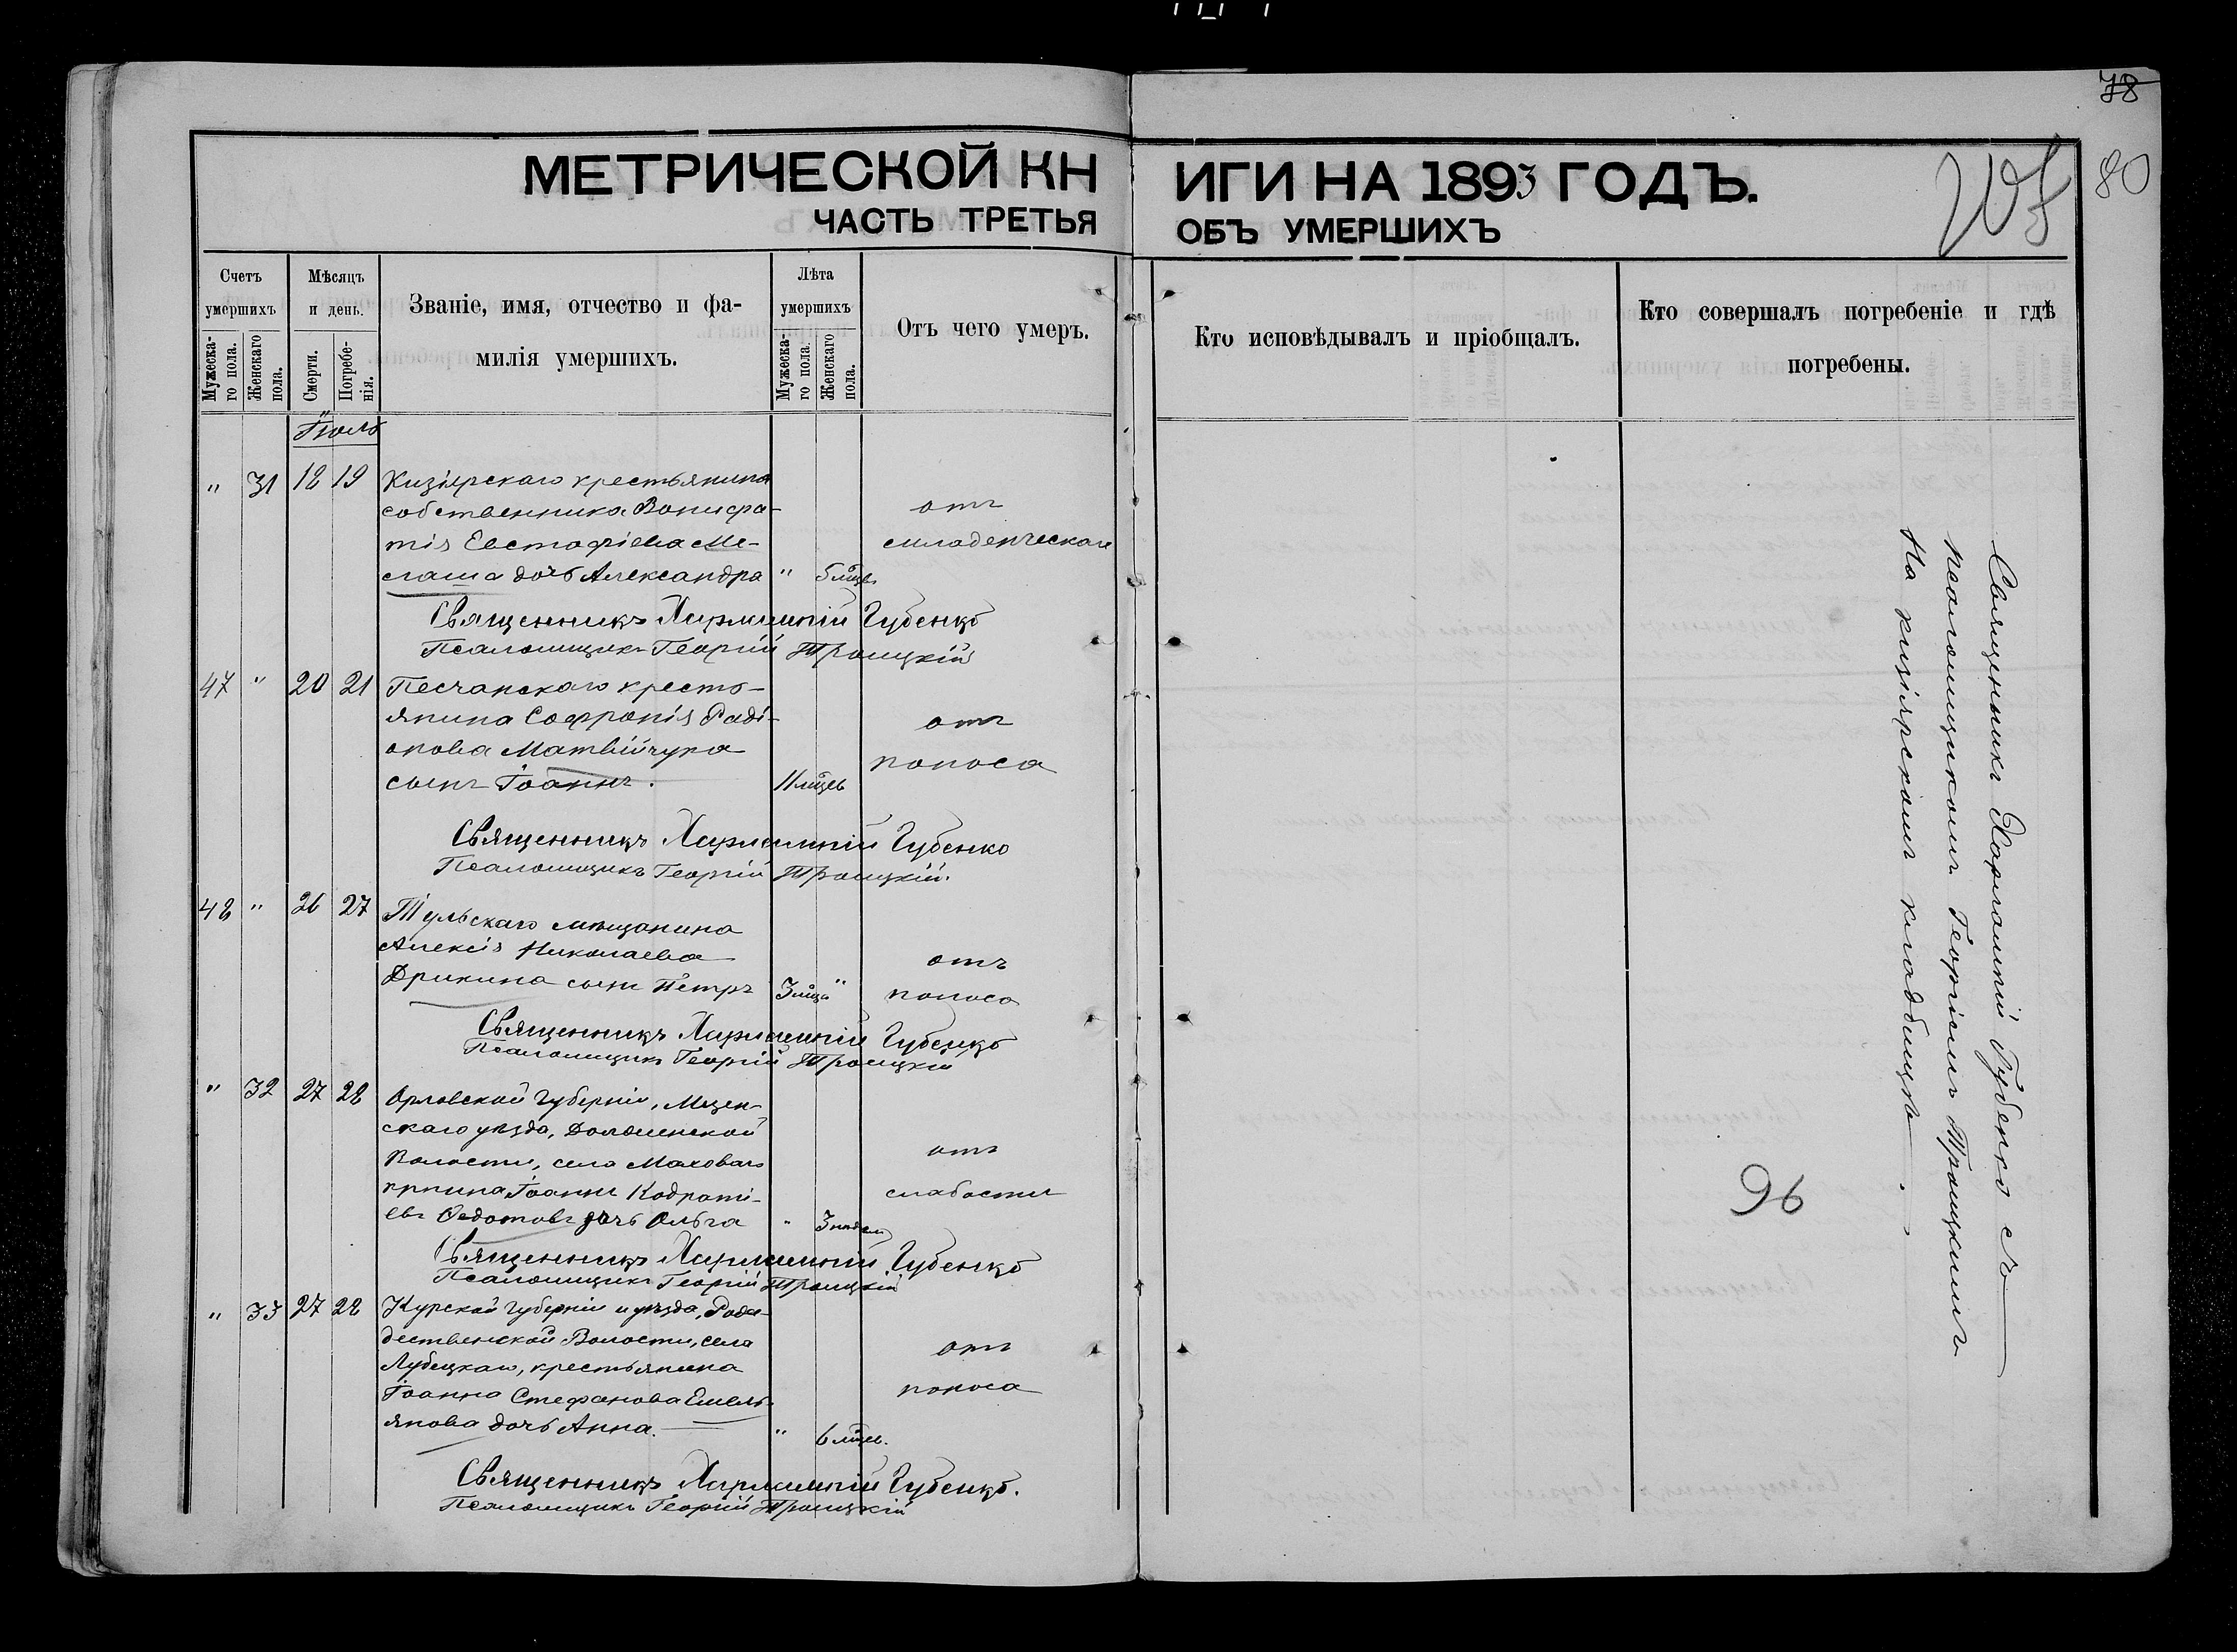 78
80
МЕТРИЧЕСКОЙ КНИГИ НА 1893 ГОДЪ.
ЧАСТЬ ТРЕТЬЯ ОБЪ УМЕРШИХЪ
Счетъ умершихъ
Мужеска-
го пола.
Женскаго
пола.
Мѣсяцъ и день.
Смерти.
Погребе-
нія.
Званіе, имя, отчество и фа-
милія умершихъ.
Лѣта умершихъ
Мужеска-
го пола.
Женскаго
пола.
Отъ чего умеръ.
Кто исповѣдывалъ и пріобщалъ.
Кто совершалъ погребеніе и гдѣ
погребены.
Іюль
" 31 18 19 Кизіярскаго крестьянина
собственника Вонифа-
тія Евстафіева
дочь Александра " 5 мцв.
отъ
младенческой
Священникъ Харлампій Губенко
Псаломщикъ Георгій Троицкій
47 " 20 21 Песчанскаго кресть-
янина Софронія Раді-
онова Матвійчука
сынъ Іоаннъ. 11 мцвъ
отъ
поноса
Священникъ Харлампій Губенко
Псаломщикъ Георгій Троицкій.
48 " 26 27 Тульскаго мѣщанина
Алексія Николаева
Дрикина сынъ Петръ 3 мца "
отъ
поноса
Священникъ Харлампій Губенко
Псаломщикъ Георгій Троицкій
" 32 27 28 Орловской губерніи, Мцен-
скаго уѣзда,
Волости, села Маховаго
крнина Іоанна Кодрати-
евъ Федотовъ дочь Ольга " 3 недѣли
отъ
слабости
Священникъ Харлампій Губенко
Псаломщикъ Георгій Троицкій
" 33 27 28 Курской губерніи и уѣзда, Рож-
дественской Волости, села
Лубецкаго, крестьянина
Іоанна Стефанова Емель-
янова дочь Анна. " 6 мцв.
отъ
поноса
Священникъ Харлампій Губенко.
Псаломщикъ Георгій Троицкій
Священникъ Харлампій Губенко съ
псаломщикомъ Георгіемъ Троицкимъ
На кизіярскомъ кладбищѣ.
96